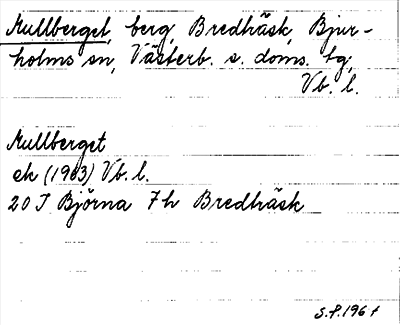 Mullberget, berg, Bredträsk, Bjur-
holms sn, Västerb. s. doms. tg,
Vb. l.
Mullberget
ek (1963) Vb. l.
20 J Björna 7h Bredträsk
S.P. 196